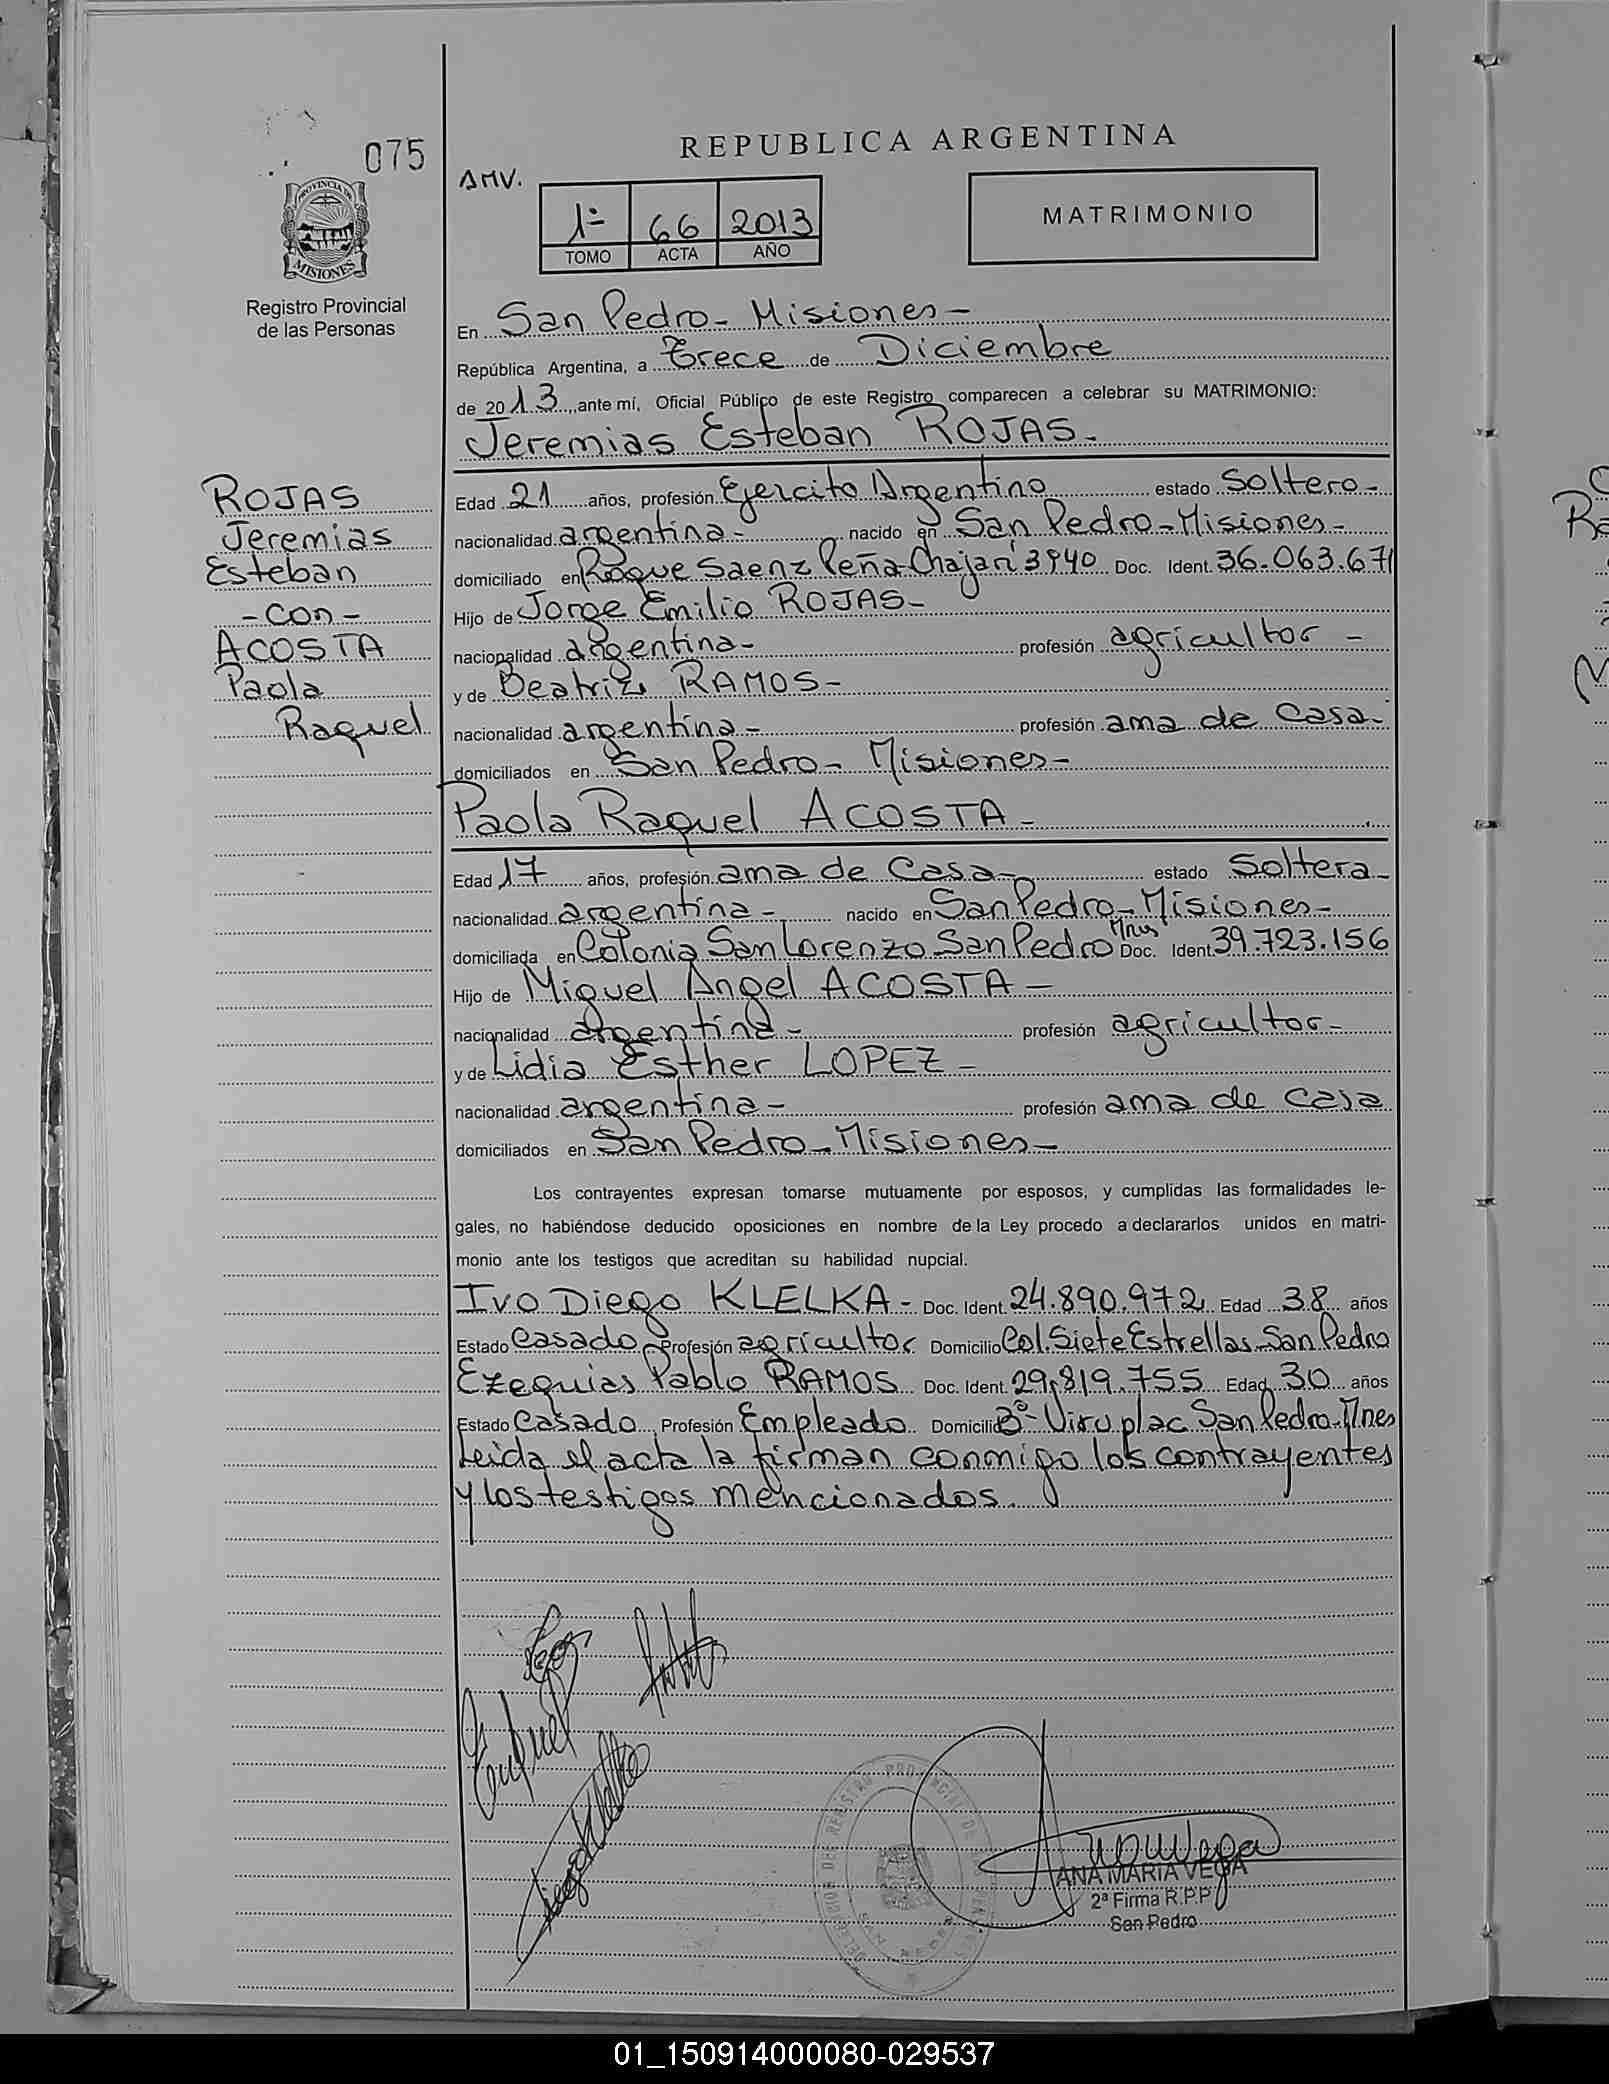 075
REPUBLICA ARGENTINA
AMV.
1º 66 2013
TOMO ACTA AÑO
MATRIMONIO
PROVINCIA DE
MISIONES
Registro Provincial
de las Personas
En San Pedro - Misiones -
República Argentina, a Trece de Diciembre
de 2013, ante mí, Oficial Público de este Registro comparecen a celebrar su MATRIMONIO:
Jeremias Esteban ROJAS -
ROJAS
Jeremias
Esteban
- con -
ACOSTA
Paola
Raquel
Edad 21 años, profesión Ejercito Argentino estado Soltero -
nacionalidad argentina - nacido en San Pedro - Misiones -
domiciliado en Roque Saenz Peña - Chajarí 3940 Doc. Ident. 36.063.671
Hijo de Jorge Emilio ROJAS -
nacionalidad argentina - profesión agricultor -
y de Beatriz RAMOS -
nacionalidad argentina - profesión ama de casa -
domiciliados en San Pedro - Misiones -
Paola Raquel ACOSTA -
Edad 17 años, profesión ama de casa - estado Soltera -
nacionalidad argentina - nacido en San Pedro - Misiones -
domiciliada en Colonia San Lorenzo San Pedro Mnes Doc. Ident. 39.723.156
Hijo de Miguel Angel ACOSTA -
nacionalidad argentina - profesión agricultor -
y de Lidia Esther LOPEZ -
nacionalidad argentina - profesión ama de casa
domiciliados en San Pedro - Misiones -
Los contrayentes expresan tomarse mutuamente por esposos, y cumplidas las formalidades le-
gales, no habiéndose deducido oposiciones en nombre de la Ley procedo a declararlos unidos en matri-
monio ante los testigos que acreditan su habilidad nupcial.
Ivo Diego KLELKA - Doc. Ident. 24.890.972 Edad 38 años
Estado Casado - Profesión agricultor Domicilio Col. Siete Estrellas - San Pedro
Ezequias Pablo RAMOS Doc. Ident. 29.819.755 Edad 30 años
Estado Casado Profesión Empleado Domicilio Bº - Viruplac San Pedro - Mnes
Leida el acta la firman conmigo los contrayentes
y los testigos mencionados.
ANA MARIA VEGA
2ª Firma R.P.P
San Pedro
01_150914000080-029537